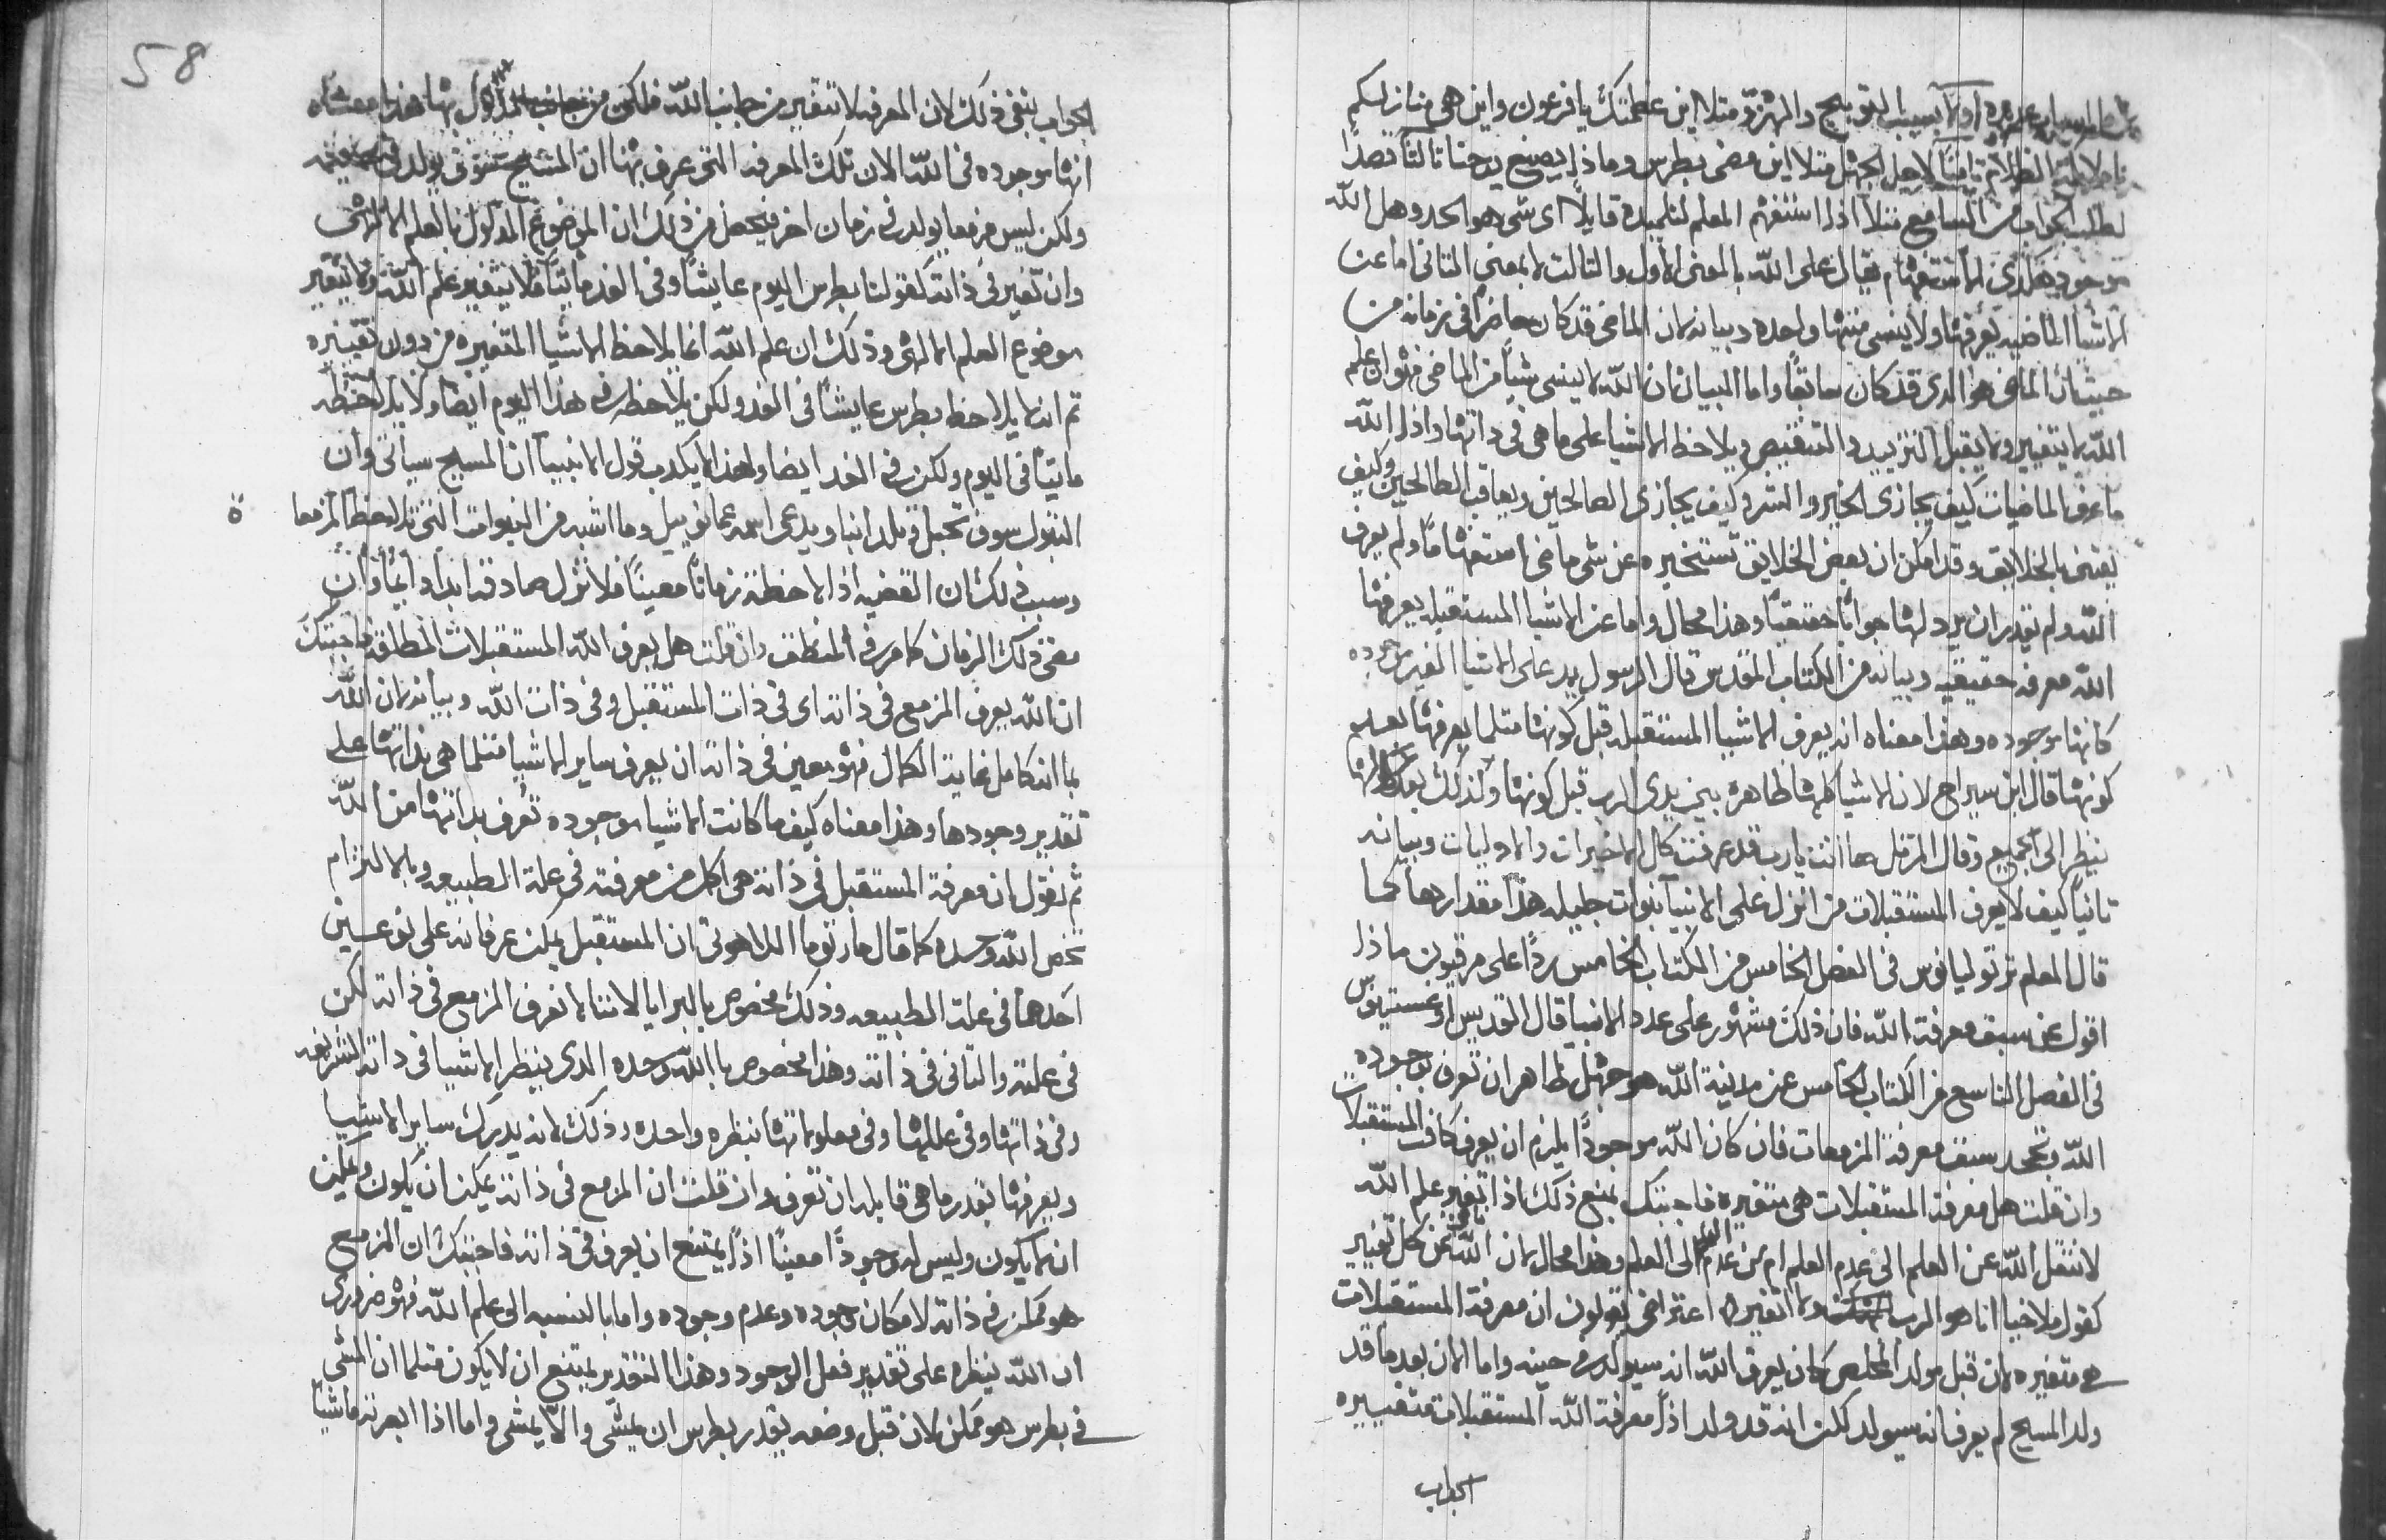 اولًا بسبب التوبيخ والهزو مثلا اين عظمتك يا فرعون واين هي منازلكم
ثانيًا لاجل الجهل مثلا اين مضى بطرس وماذا يصنع يوحنا ثالثًا قصدًا
لطلب الجواب من السامع مثلًا اذا استفهم المعلم لتلميده قايلًا اى شى هو الحد وهل الله
موجود هكذى الاستفهام يقال على الله بالمعنى الاول والتالت لا بمعنى التانى اما عن
الاشيا الماضيه يعرفها ولا ينسى منها واحده وبيانه لان الماضى قد كان حاضرًا فى زمانه من
حيث ان الماضى هو الدى قد كان سابقًا واما البيان ان الله لا ينسى شيًا من الماضى فهو ان علم
الله لا يتغير ولا يقبل التزييد والتنقيص ويلاحظ الاشيا على ما هى فى داتها واذا الله
ما عرف الماضيات كيف يجازى الخير والشر وكيف يجازى الصالحين ويعاقب الطالحين وكيف
يعتنى بالخلايق وقد امكن ان بعض الخلايق تستخبره عن شى ماضى استفهامًا ولم يعرف
الله ولم يقدر ان يرد لها جوابًا حقيقيًا وهذا محال واما عن الاشيا المستقبله يعرفها
الله معرفه حقيقيه وبيانه من الكتاب المقدس قال الرسول يدعى الاشيا الغير موجوده
كانها موجوده وهذا معناه انه يعرف الاشيا المستقبله قبل كونها مثلما يعرفها بعد
كونها قال ابن سيراج لان الاشيا كلها ظاهره بين يدى الرب قبل كونها وكذلك بعد كمالها
ينظر الى الجميع وقال المرتل ها انت يا رب قد عرفت كل الاخيرات والاوليات وبيانه
تانيًا كيف لا يعرف المستقبلات من انزل على الانبيا نبوات جليله هذا مقدارها كما
قال المعلم ترتوليانوس فى الفصل الخامس من الكتاب الخامس ردًا على مرقيون ماذا
اقول عن سبق معرفة الله فان ذلك مشهور على عدد الانبيا قال القديس اوغستينوس
فى الفصل التاسع من الكتاب الخامس عن مدينة الله هو جهل ظاهر ان تعرف بوجود
الله وتجحد سبق معرفة المزمعات فان كان الله موجودًا يلزم ان يعرف كافة المستقبلات
وان قلت هل معرفة المستقبلات هى متغيره فاجبتك بمنع ذلك لاذا تغير علم الله
لانتقل الله عن العلم الى عدم العلم ام من عدم العلم الى العلم وهذا محال لان الله غنى عن كل تغيير
كقول ملاخيا انا هو الرب ولا اتغير اعتراض يقولون ان معرفة المستقبلات
هى متغيره لان قبل مولد المخلص كان يعرف الله انه سيولد فى حينه واما الان بعد ما قد
ولد المسيح لم يعرف انه سيولد لكن انه قد ولد اذًا معرفة الله المستقبلات متغييره
الجواب
58
الجواب ينفى ذلك لان المعرفه لا تتغير من جانب الله فلكن من جانب المدلول بها هذا معناه
انها موجوده فى الله الان تلك المعرفه التى عرف بها ان المسيح سوف يولد فى حينه
ولكن ليس مزمعا يولد فى زمان اخر فيحصل من ذلك ان الموضوع المدلول بالعلم الالهى
وان تغير فى ذاته كقولنا بطرس اليوم عايشًا وفى الغد مايتًا فلا يتغير علم الله ولا يتغير
موضوع العلم الالهى وذلك ان علم الله انما يلاحظ الاشيا المتغيره من دون تغييره
ثم انه لا يلاحظ بطرس عايشًا فى الغد ولكن يلاحظه فى هذا اليوم ايضا ولا يلاحظه
مايتًا فى اليوم ولكن فى الغد ايضا ولهذا لا يكدب قول الانبيا ان المسيح سياتى وان
البتول سوف تحبل وتلد ابنا ويدعى اسمه عمانوييل وما اشبه من النبوات التى تلاحظ المزمعا
ة
وسبب ذلك ان القضيه اذا لاحظت زمانًا معينًا فلا تزل صادقه ابدًا دايمًا وان
مضى ذلك الزمان كما مر فى المنطق وان قلت هل يعرف الله المستقبلات المطلقه فاجبتك
ان الله يعرف المزمع فى ذاته اى فى ذات المستقبل وفى ذات الله وبيانه لان الله
بما انه كامل غاية الكمال فهو معين فى ذاته ان يعرف ساير الاشيا مثلما هى بذاتها على
تقدير وجودها وهذا معناه كيف ما كانت الاشيا موجوده تعرف بداتها من الله
ثم نقول ان معرفة المستقبل فى ذاته هى اكمل من معرفته فى علة الطبيعه وبالالتزام
تخص الله وحده كما قال مار توما اللاهوتى ان المستقبل يمكن عرفانه على نوعين
احدهما فى علة الطبيعه وذلك مخصوص بالبرايا لاننا لا نعرف المزمع فى ذاته لكن
فى علته والتانى فى ذاته وهذا مخصوص باالله وحده الدى ينظر الاشيا فى داته الشريفه
وفى ذاتها وفى عللها وفى معلولاتها بنظره واحده وذلك لانه يدرك ساير الاشيا
ويعرفها بقدر ما هى قابله ان تعرف وان قلت ان المزمع فى ذاته يمكن ان يكون ويمكن
انه لا يكون وليس له وجودًا معينًا اذًا يمتنع ان يعرف فى ذاته فاجبتك ان المزمع
هو ممكن فى ذاته لامكان وجوده وعدم وجوده واما بالنسبه الى علم الله فهو ضرورى
ان الله ينظره على تقدير فعل الوجود وهذا التقدير يمتنع ان لا يكون مثلما ان المشى
فى بطرس هو ممكن لان قبل وضعه يقدر بطرس ان يمشى والا يمشى واما اذا ابصرته ماشيًا